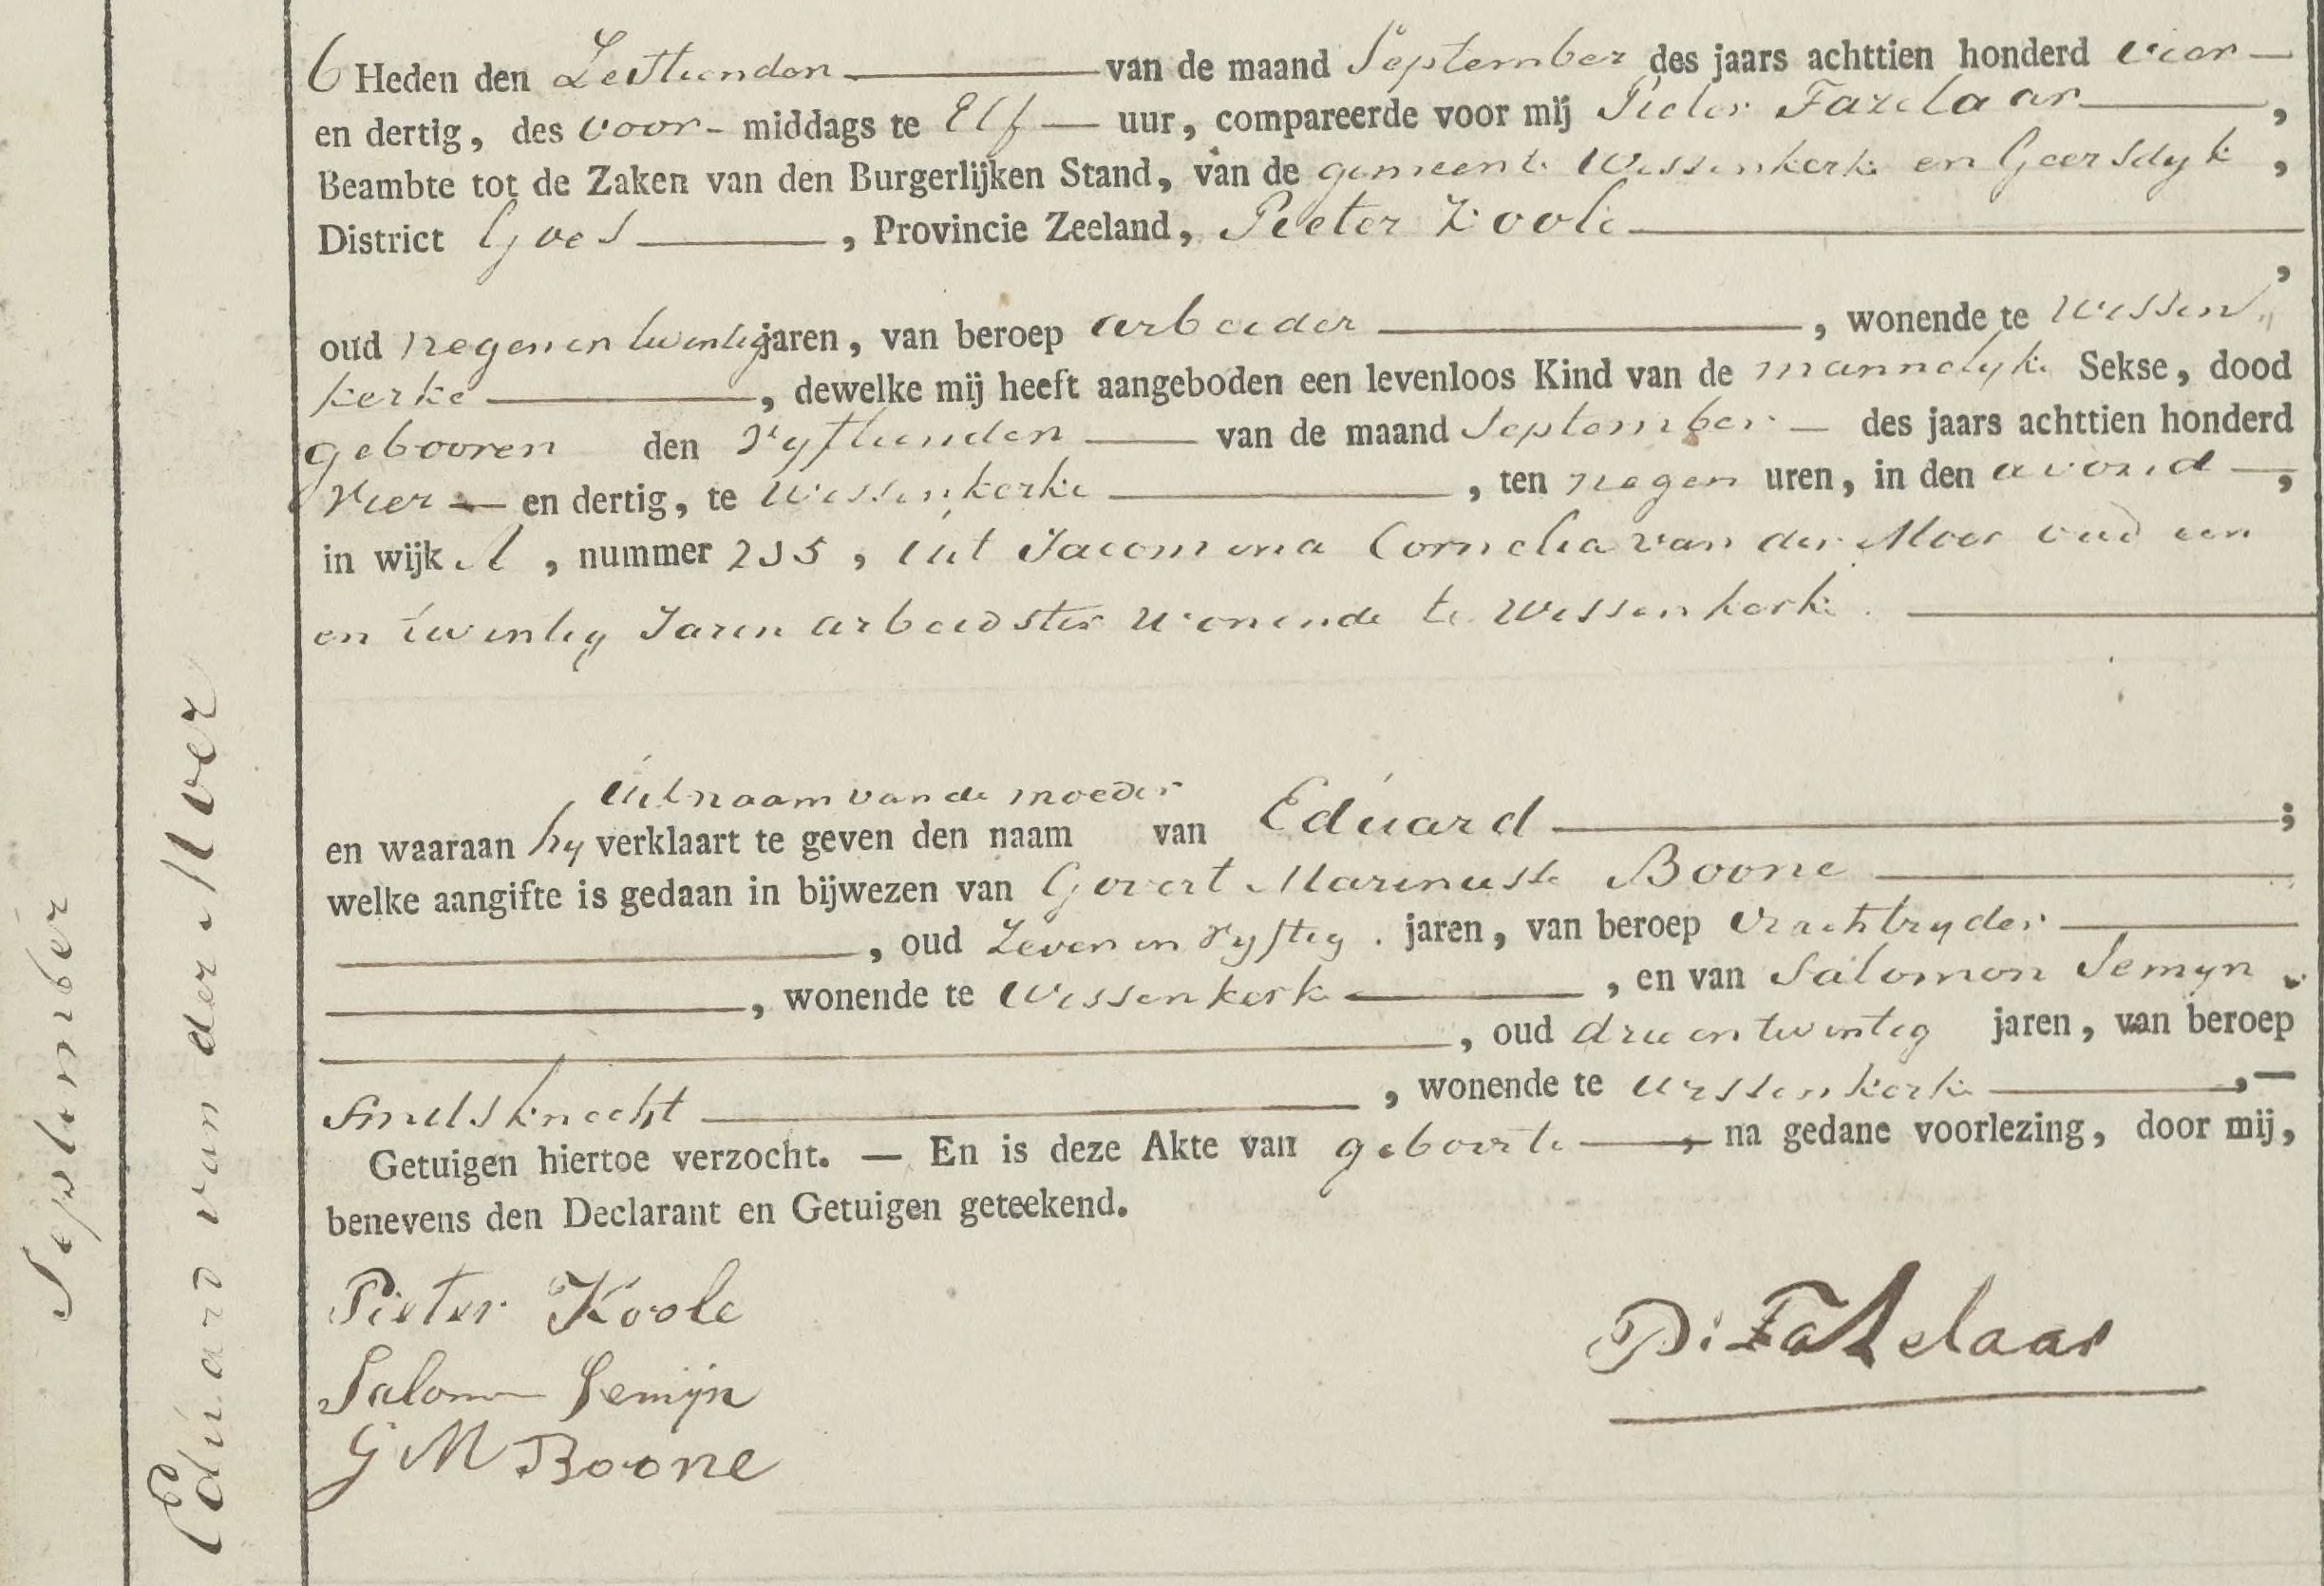 September
Eduard van der Moer
6 Heden den Zestienden van de maand September des jaars achttien honderd vier
en dertig, des voor- middags te Elf uur, compareerde voor mij Pieter Fazelaar,
Beambte tot de Zaken van den Burgerlijken Stand, van de gemeente Wissenkerke en Geersdyk,
District Goes, Provincie Zeeland, Pieter Koole
,
oud negen en twintig jaren, van beroep arbeider, wonende te Wissen„
kerke, dewelke mij heeft aangeboden een levenloos Kind van de mannelyke Sekse, dood
gebooren den Vyftienden van de maand September des jaars achttien honderd
Vier en dertig, te Wissenkerke, ten negen uren, in den avond,
in wijk A, nummer 235, uit Jacomina Cornelia van der Moer oud een
en twintig Jaren arbeidster wonende te Wissenkerke.
uit naam van de moeder
en waaraan hy verklaart te geven den naam van Eduard;
welke aangifte is gedaan in bijwezen van Govert Marinusse Boone
, oud Zeven en vyftig. jaren, van beroep vrachtryder
, wonende te Wissenkerke, en van Salomon Semyn
, oud drie en twintig jaren, van beroep
smidsknecht, wonende te Wissenkerke,
Getuigen hiertoe verzocht. — En is deze Akte van geboorte, na gedane voorlezing, door mij,
benevens den Declarant en Getuigen geteekend.
Pieter Koole
P: Fazelaar
Salomon Semijn
G M Boone